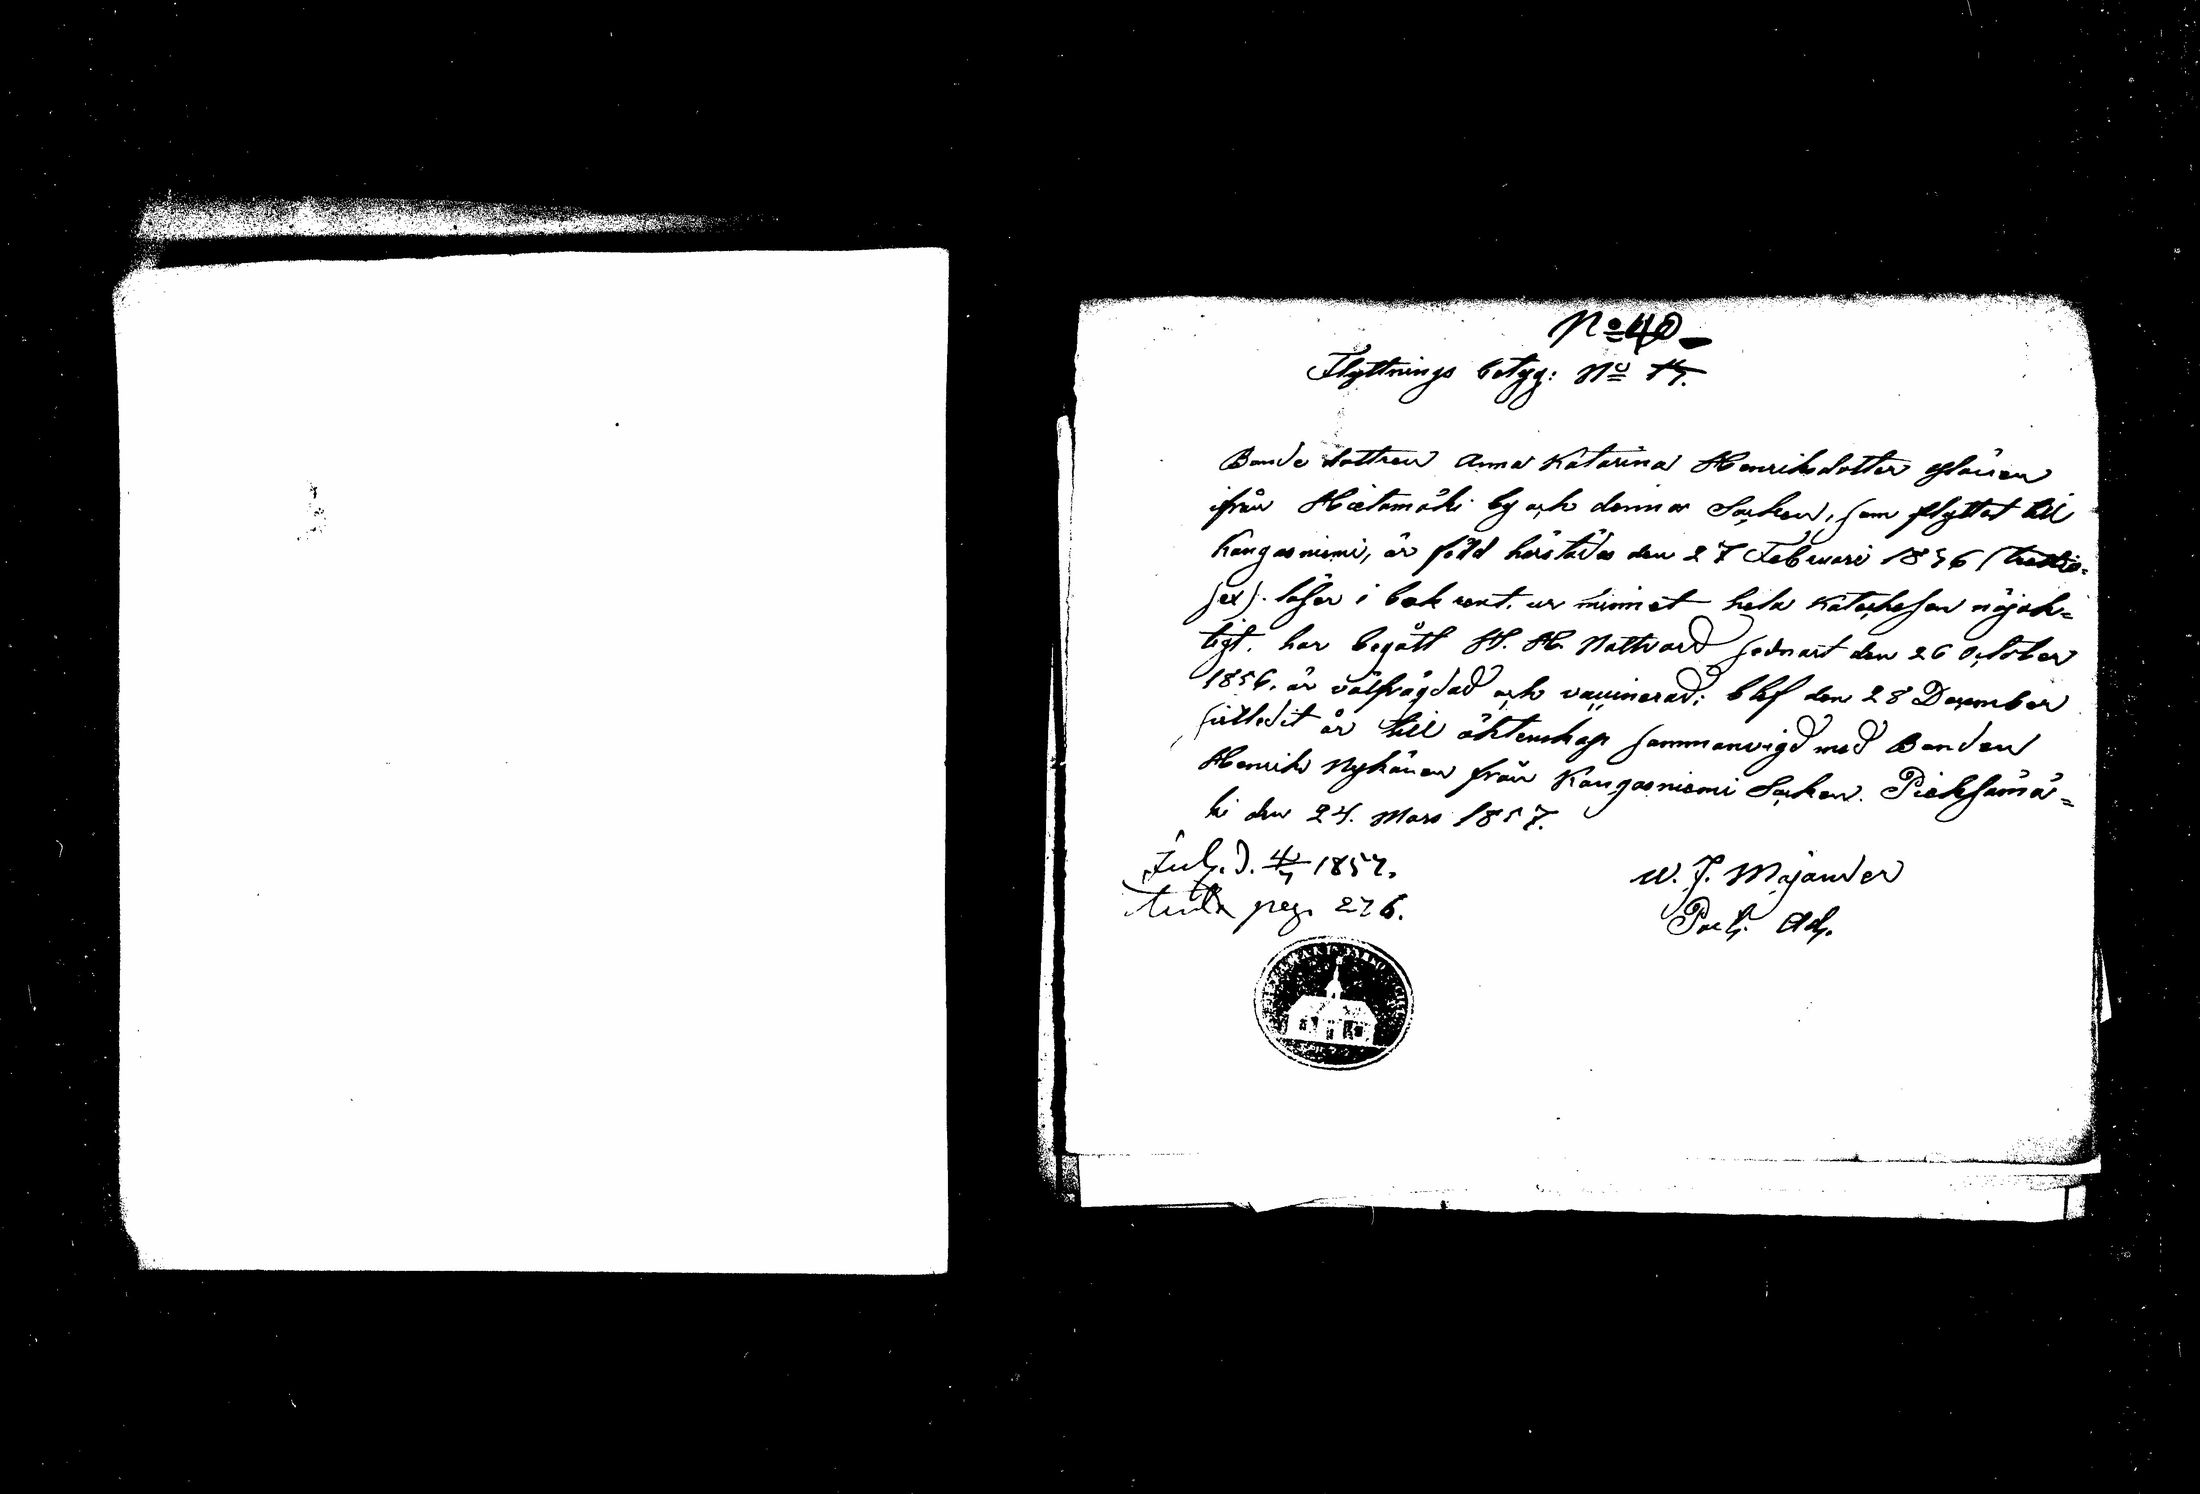 No 40
Flyttnings betyg: No 17.
Bonde dottren Anna Katarina Henriksdotter
ifrån Hietamäki by och denna Socken, som flyttat till
Kangasniemi, är född härstädes den 27 Februari 1836 (trettio-
sex). läser i bok rent. ur minnet hela Katechesen nöjak-
tigt. har begått H. H. Nattvard sednast den 26 October
1856. är välfrägdad och vaccinerad; blef den 28 December
sistledit år till äktenskap sammanvigd med Bonden
Henrik Nykänen från Kangasniemi Socken. Pieksämä-
ki den 24. Mars 1857.
1857.
pag. 276.
W. J. Majander
Past. Adj.